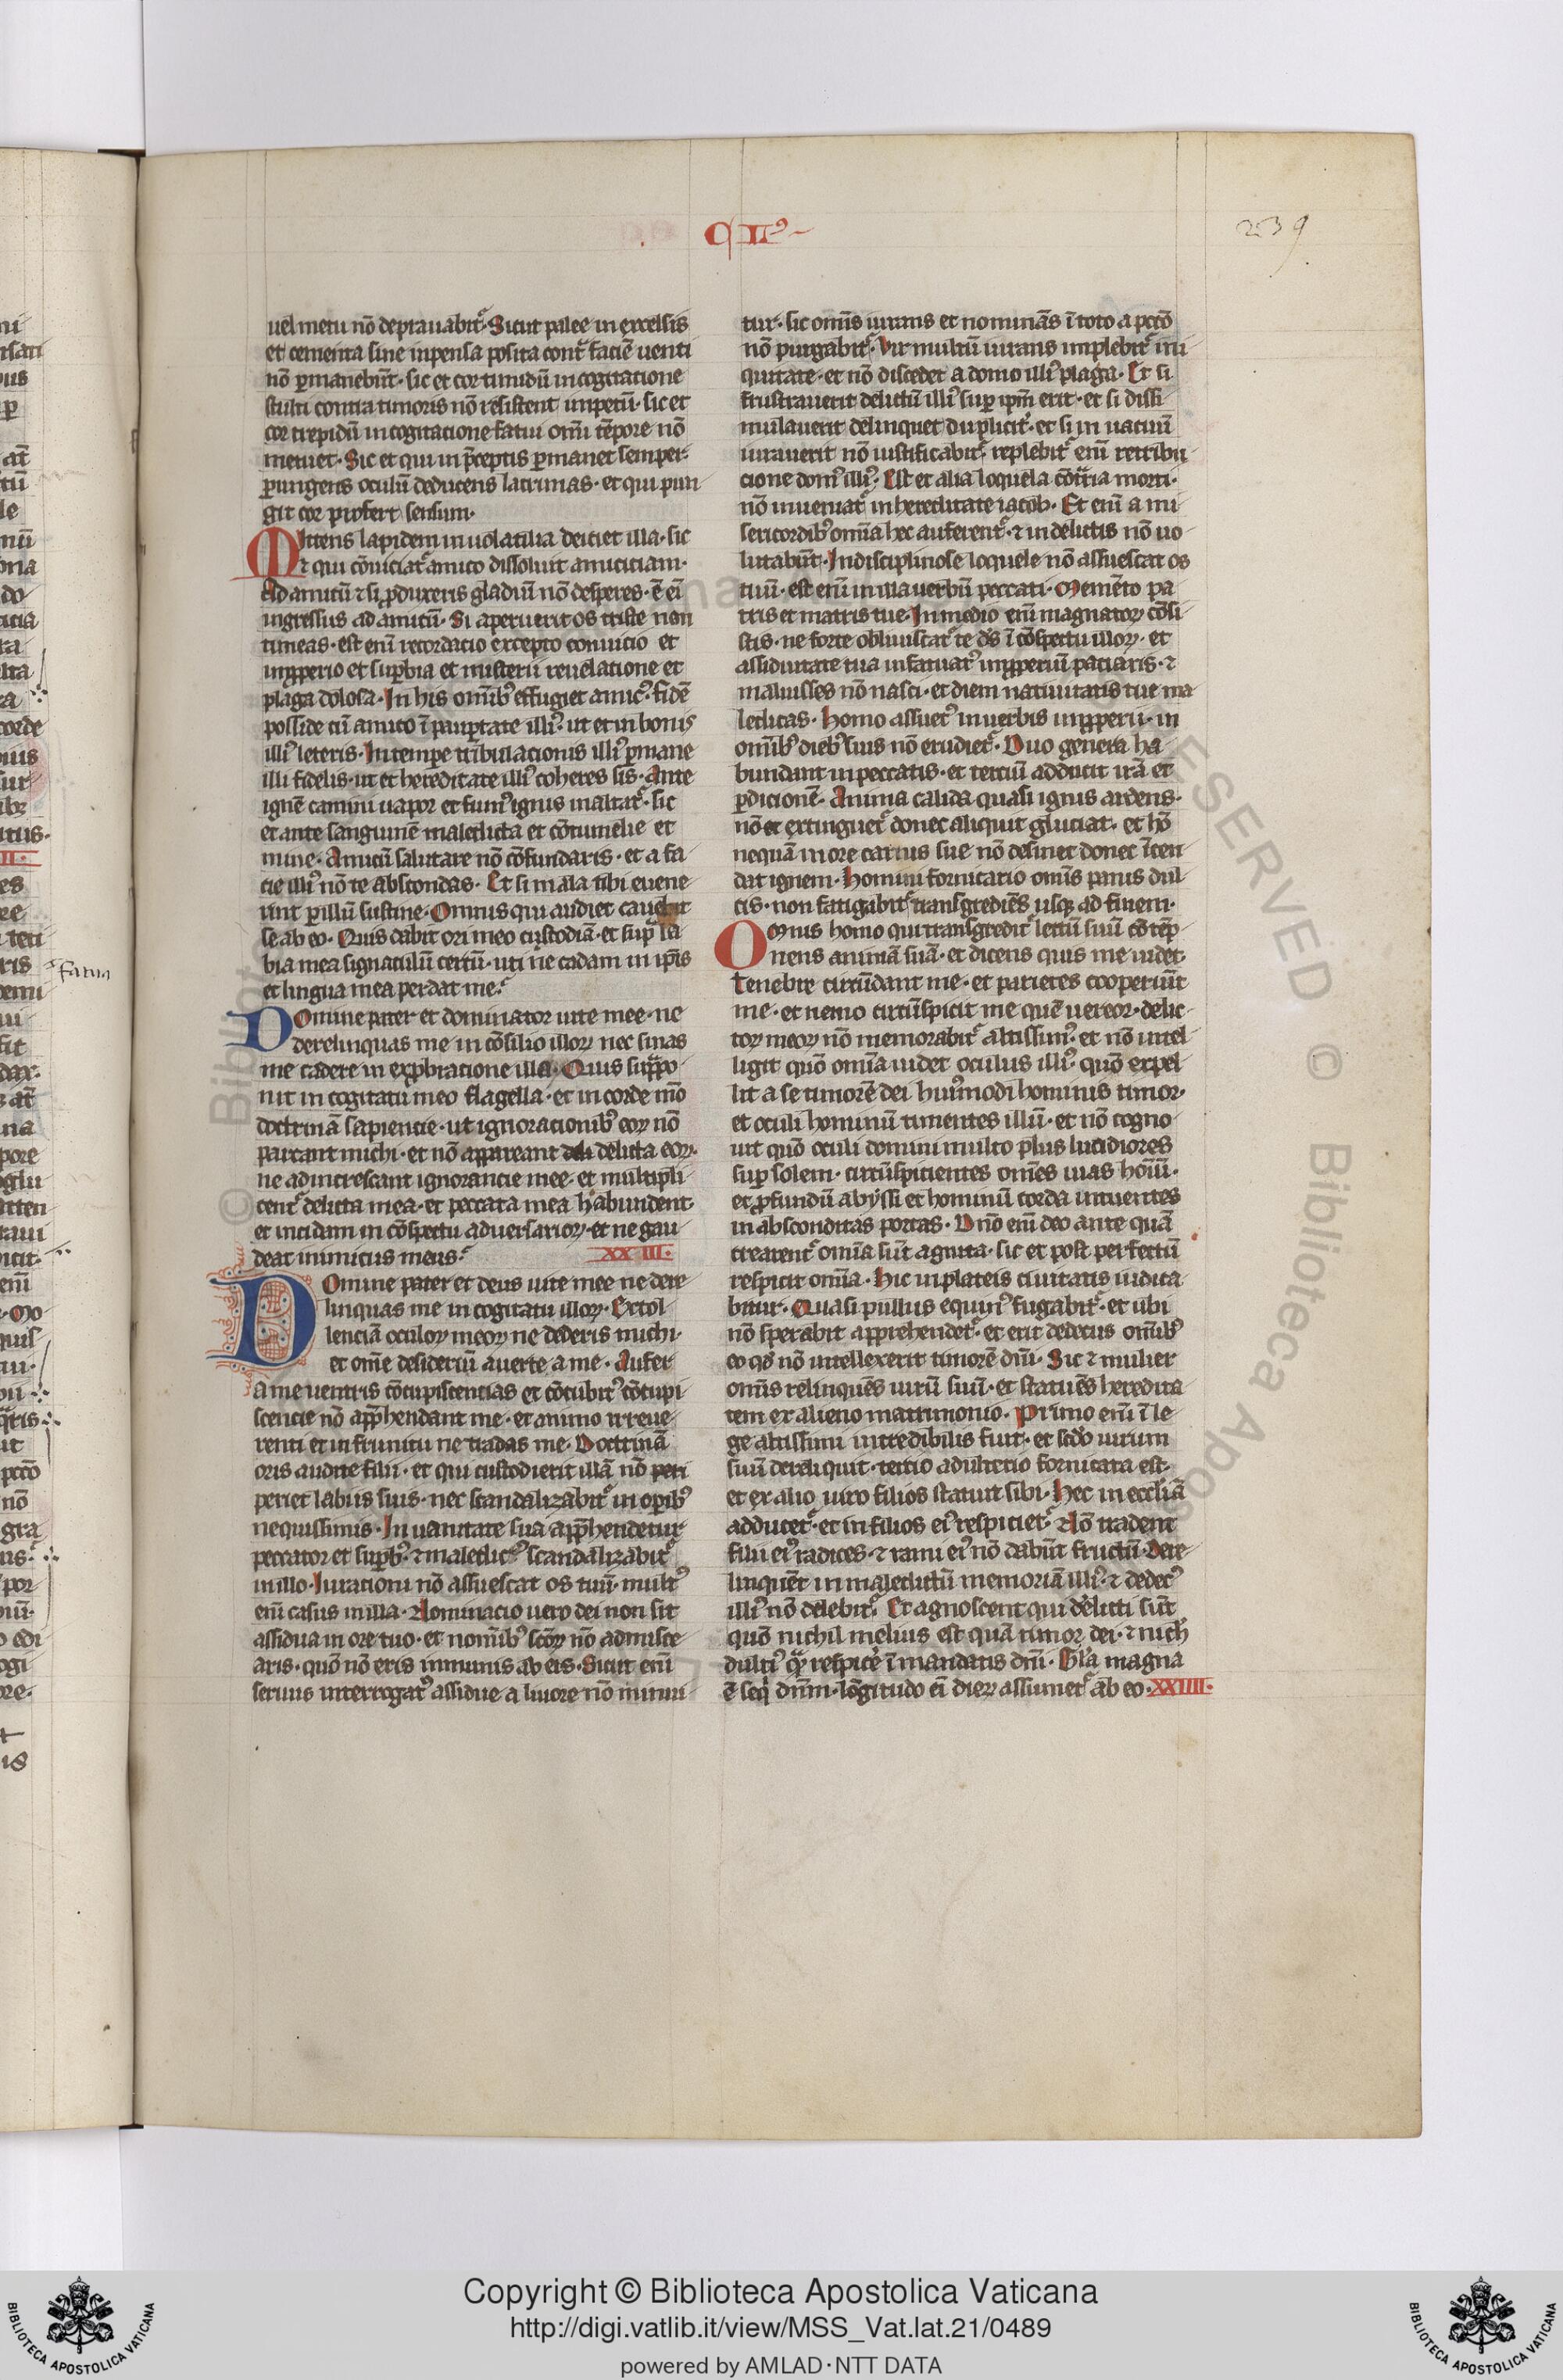 C II⁹
239
uel metu nō deprauabit᷑. Sicut palee in excelsis
et cementa sine inpensa posita cont᷑ faciē uenti
nō ꝑmanebūt. sic et cor timidū in cogitatione
stulti contra timoris nō resistent impetū. sic et
cor trepidū in cogitacione fatui om̄i tēpore nō
metuet. Sic et qui in p̄ceptis ꝑmanet semper.
ꝑungens oculū deducens lacrimas. et qui pun
git cor profert sensum.
Mittens lapidem in uolatilia deiciet illa. sic
⁊ qui cōuiciat᷑ amico dissoluit amiciciam.
Ad amicū ⁊ si ꝓduxeris gladiū nō desperes. ē ei᷑
ingressus ad amicū. Si aperuerit os triste non
timeas. est eni᷑ recordacio excepto conuicio et
imꝓperio et suꝑbia et misterii reuelatione et
plaga dolosa. In his om̄ibꝰ effugiet amicꝰ. fidē
posside cū amico ī pauꝑtate illiꝰ. ut et in bonis
illiꝰ leteris. In tempe tribulacionis illiꝰ ꝑmane
illi fidelis. ut et hereditate illiꝰ coheres sis. Ante
ignē camini uapor et fumꝰ ignis inaltat᷑. sic
et ante sanguinē maledicta et cōtumelie et
mine. Amicū salutare nō cōfundaris. et a fa
cie illiꝰ nō te abscondas. Et si mala tibi euene
rint ꝑ illū sustine. Omnis qui audiet cauebit
se ab eo. Quis dabit ori meo custodiā. et suꝑ la
bia mea signaculū certū. uti ne cadam in ip̄is
et lingua mea perdat me.
Domine pater et dominator uite mee. ne
derelinquas me in cōsilio illoꝝ nec sinas
me cadere in exꝓbracione illa. Quis sup̄po
nit in cogitatu meo flagella. et in corde m̄o
doctrinā sapiencie. ut ignoracionibꝰ eoꝝ nō
parcant michi. et nō appareant deli delicta eoꝝ.
ne adincrescant ignorancie mee. et multipli
cent᷑ delicta mea. et peccata mea habundent.
et incidam in cōspectu aduersarioꝝ. et ne gau
deat inimicus meus. XX III.
Domine pater et deus uite mee ne dere
linquas me in cogitatu illoꝝ. Extol
lenciā oculoꝝ meoꝝ ne dederis michi.
et om̄e desideriū auerte a me. Aufer
a me uentris cōcupiscencias et cōcubitꝰ cōcupi
scencie nō app̄hendant me. et animo irreue
renti et infrunitu ne tradas me. Doctrinā
oris audite filii. et qui custodierit illā nō peri
periet labiis suis. nec scandalizabit᷑ in oꝑibꝰ
nequissimis. In uanitate sua app̄hendetur
peccator et suꝑbꝰ. ⁊ maledicꝰ scandalizabit᷑
in illo. Iuracioni nō assuescat os tuū. multꝰ
eni᷑ casus in illa. Nominacio uero dei non sit
assidua in ore tuo. et nom̄ibꝰ sc̄oꝝ nō admisce
aris. quō nō eris inmunis ab eis. Sicut eni᷑
seruus interrogatꝰ assidue a liuore nō minui
tur. sic om̄is iurans et nominās ī toto a pcc̄o
nō purgabit᷑. Vir multū iurans implebit᷑ ini
quitate. et nō discedet a domo illiꝰ plaga. Et si
frustrauerit delictū illiꝰ suꝑ ip̄m erit. et si dissi
mulauerit delinquet dupliciꝉ. et si in uacuū
iurauerit nō iustificabit᷑. replebit᷑ eni᷑ retribu
cione domꝰ illiꝰ. Est et alia loquela cōt᷑ria morti.
nō inueniat᷑ in hereditate iacob. Et eni᷑ a mi
sericordibꝰ om̄ia hec auferent᷑. ⁊ in delictis nō uo
lutabūt. Indisciplinose loquele nō assuescat os
tuū. est eni᷑ in illa uerbū peccati. Memēto pa
tris et matris tue. In medio eni᷑ magnatoꝝ cōsi
stis. ne forte obliuiscat᷑ te d̄s ī cōspectu illoꝝ. et
assiduitate tua infatuatꝰ imꝓperiū paciaris. ⁊
maluisses nō nasci. et diem natiuitatis tue ma
ledicas. Homo assuetꝰ in uerbis imꝓperii. in
om̄ibꝰ diebꝰ suis nō erudiet᷑. Duo genera ha
bundant in peccatis. et terciū adducit irā et
ꝑdicionē. Anima calida quasi ignis ardens.
nō et extinguet᷑ donec aliquit gluciat. et hō
nequā in ore carnis sue nō desinet donec īcen
dat ignem. Homini fornicario om̄is panis dul
cis. non fatigabit᷑ transgrediēs usqꝫ ad finem.
Omnis homo qui transgredit᷑ lectū suū cōtēp
nens animā suā. et dicens quis me uidet.
Tenebre circūdant me. et parietes cooperiūt
me. et nemo circūspicit me quē uereor. delic
toꝝ meoꝝ nō memorabit᷑ altissimꝰ. et nō intel
ligit quō om̄ia uidet oculus illiꝰ. quō expel
lit a se timorē dei huiꝰmodi hominis timor.
et oculi hominū timentes illū. et nō cogno
uit quō oculi domini multo plus lucidiores
suꝑ solem. circūspicientes om̄es uias hoīū.
et ꝓfundū abyssi et hominū corda intuentes
in absconditas partes. Dn̄o eni᷑ deo ante quā
crearent᷑ om̄ia sūt agnita. sic et post perfectū
respicit om̄ia. Hic in plateis ciuitatis iudica
bitur. Quasi pullus equinꝰ fugabit᷑. et ubi
nō sperabit apprehendet᷑. et erit dedecus om̄ibꝰ
eo qđ nō intellexerit timorē dn̄i. Sic ⁊ mulier
om̄is relinquēs uirū suū. et statuēs heredita
tem ex alieno matrimonio. Primo eni᷑ ī le
ge altissimi incredibilis fuit. et sc̄do uirum
suū dereliquit. tercio adulterio fornicata est.
et ex alio uiro filios statuit sibi. Hec in eccl̄iā
adducet᷑. et in filios eiꝰ respiciet᷑. Nō tradent
filii eiꝰ radices. ⁊ rami eiꝰ nō dabūt fructū. Dere
linquēt in maledictū memoriā illiꝰ. ⁊ dedecꝰ
illiꝰ nō delebit᷑. Et agnoscent qui delicti sūt
quō nichil melius est quā timor dei. ⁊ nich̄
dulciꝰ qᷓ respice᷑ ī mandatis dn̄i. Gl̄a magna
ē seqi᷑ dn̄m. lōgitudo ei᷑ dieꝝ assumet᷑ ab eo. XXIIII.
fatun
Copyright © Biblioteca Apostolica Vaticana
http://digi.vatlib.it/view/MSS_Vat.lat.21/0489
powered by AMLAD·NTT DATA
BIBLIOTECA APOSTOLICA VATICANA
BIBLIOTECA APOSTOLICA VATICANA